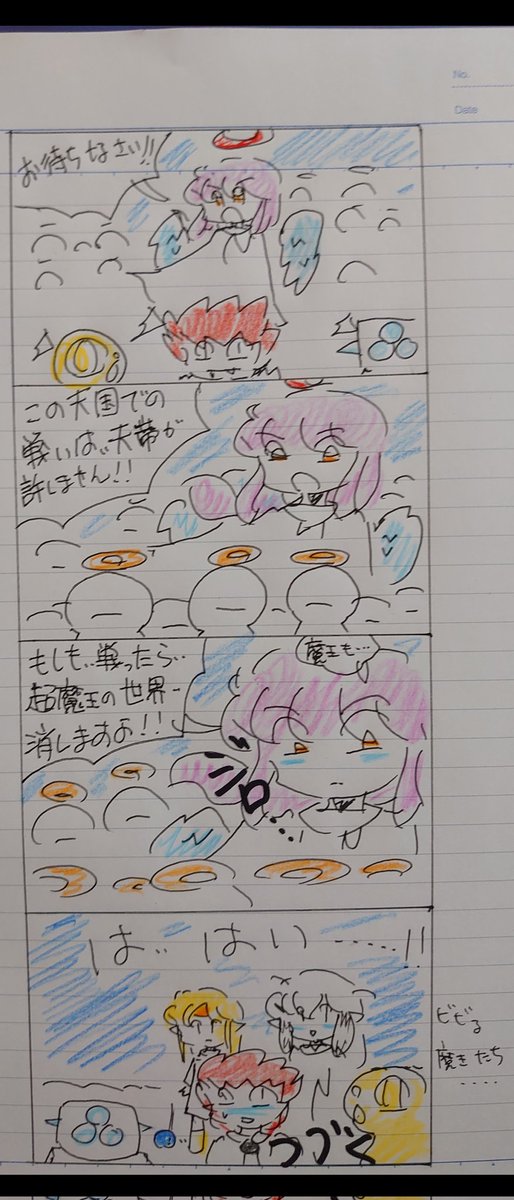 No.
Date
お待ちなさい!!
この天国での
戦いは、天帝が
許しません!!
もしも…戦ったら…
超魔王の世界…
消しますよ!!
魔王も…
は… はい……!!
ビビる
魔きたち
....
つづく